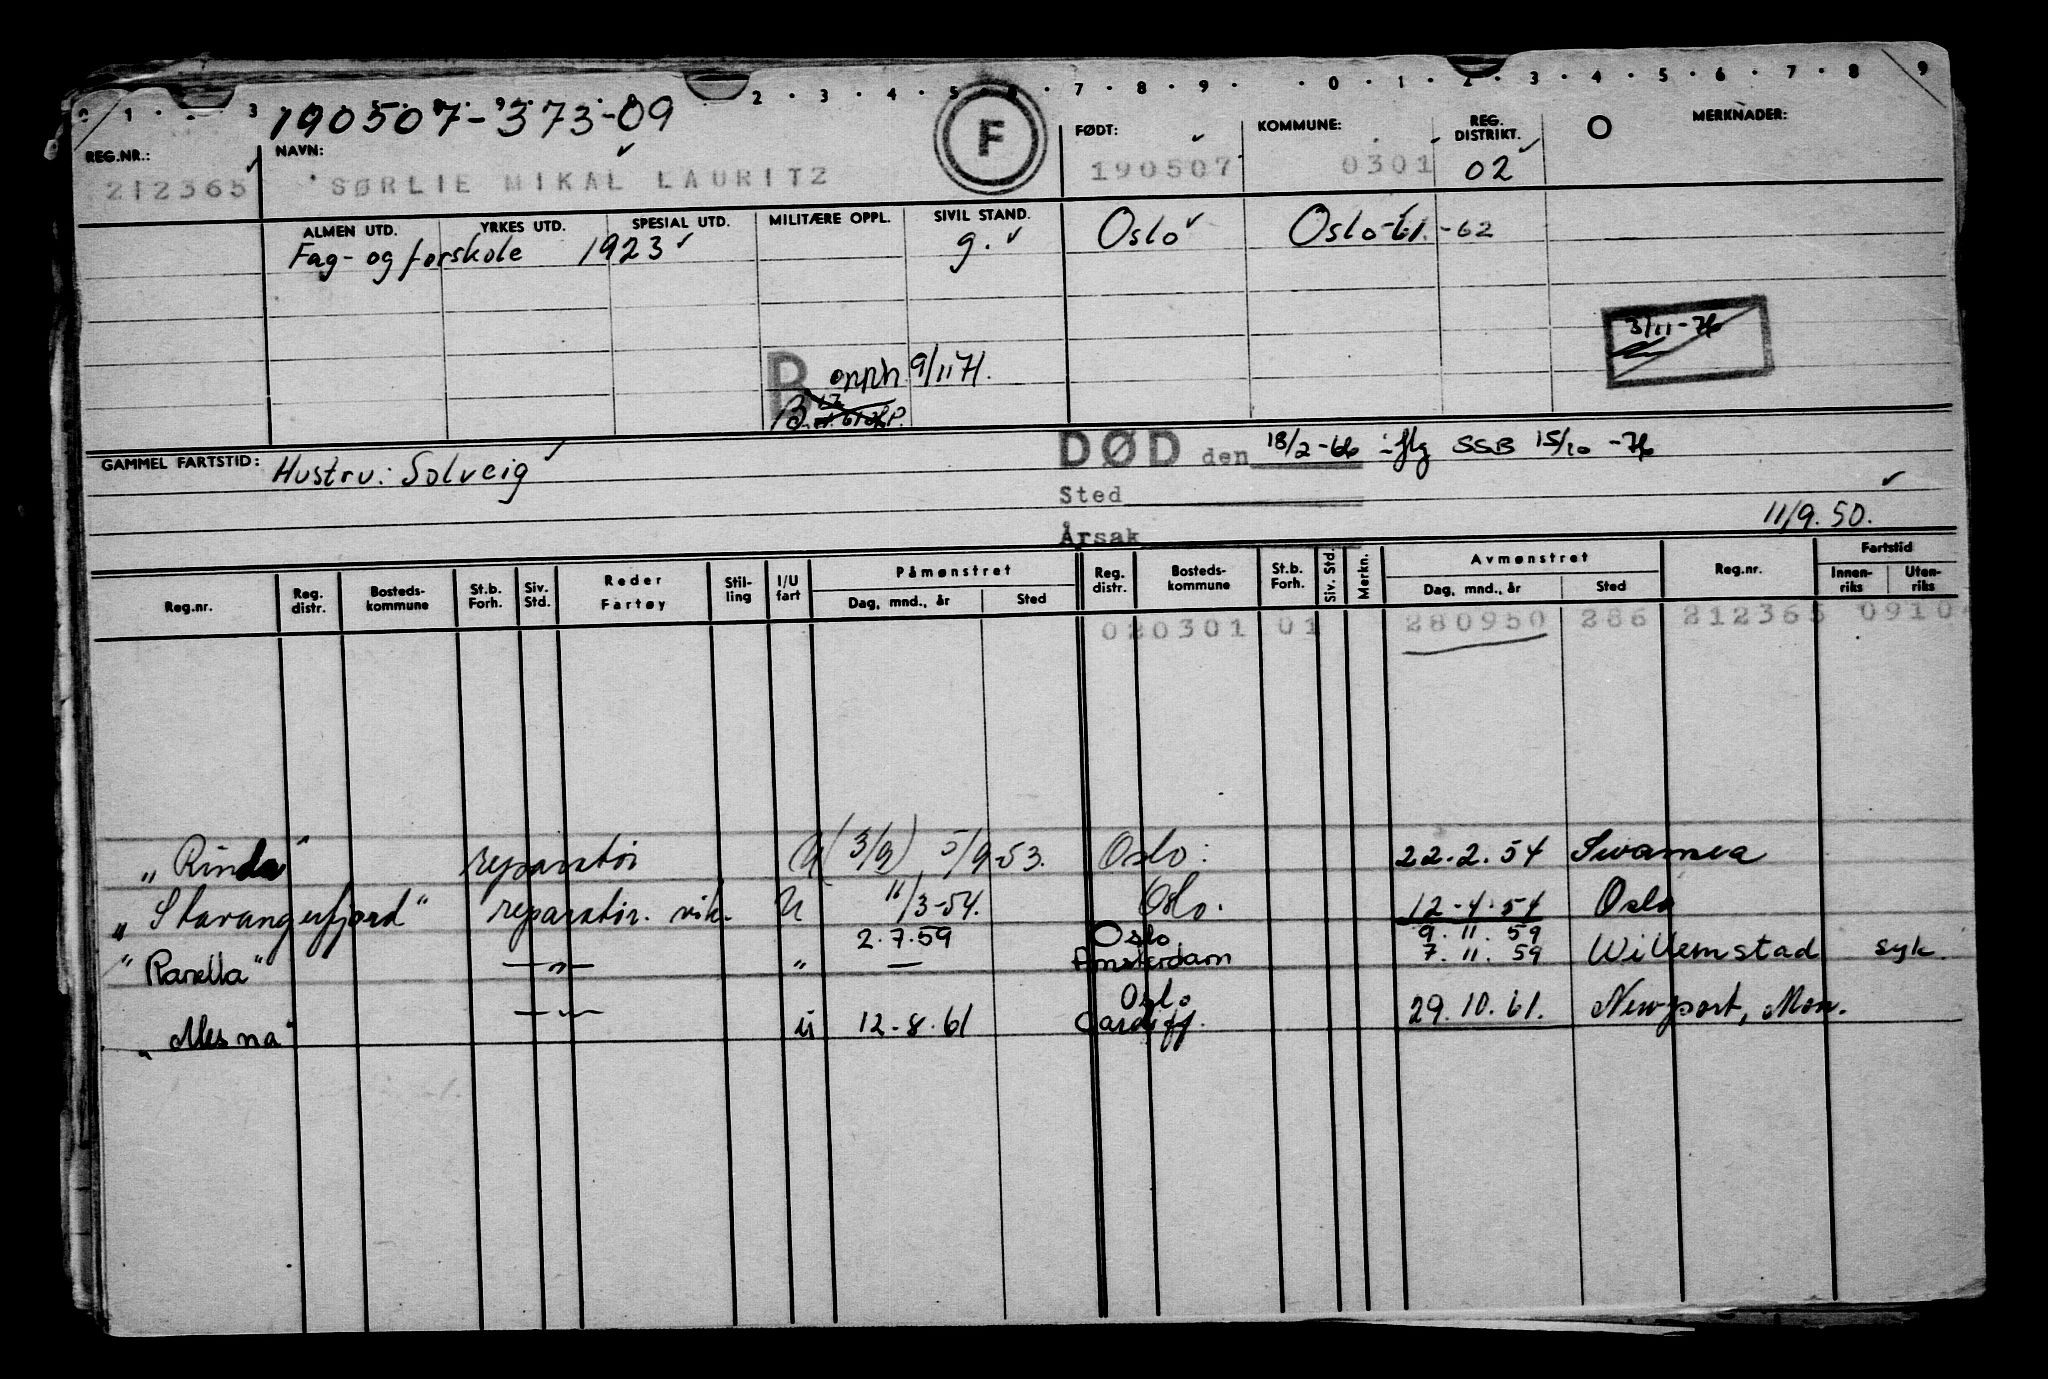 0 1 . . 3 . . . . . 2 . 3 . 4 . 5 . 6 . 7 . 8 . 9 . . 0 . 1 . 2 . 3 . 4 . 5 . 6 . 7 . 8 . 9
190507-373-09
F
REG.NR.: NAVN: FØDT: KOMMUNE: REG. DISTRIKT. O MERKNADER:
212365 SØRLIE MIKAL LAURITZ 190507 0301 02
ALMEN UTD. YRKES UTD. SPESIAL UTD. MILITÆRE OPPL. SIVIL STAND.
Fag- og forskole 1923 g. Oslo Oslo-61.-62
3/11-76
B opph. 9/11 71.
B.
GAMMEL FARTSTID: Hustru: Solveig
DØD den 18/2-66 iflg SSB 15/10-76
Sted
Årsak
11/9.50.
Reg.nr. Reg. distr. Bosteds-kommune St.b. Forh. Siv. Std. Reder Fartøy Stil-ling I/U fart Påmønstret Dag, mnd., år Sted Reg. distr. Bosteds-kommune St.b. Forh. Siv. Std. Merkn. Avmønstret Dag, mnd., år Sted Reg.nr. Fartstid Innen-riks Uten-riks
020301 01 280950 286 212365 0910
"Rinda" reparatør U (3/9) 5/9-53. Oslo: 22.2.54 Swansea
"Stavangerfjord" reparatør. vik. U 11/3-54. Oslo. 12-4-54 Oslo
2.7.59 Oslo 9.11.59
"Ranella" —"— " — Amsterdam 7.11.59 Willemstad syk.
Oslo
"Mesna" —"— u 12-8-61 Cardiff. 29.10.61. Newport, Mon.